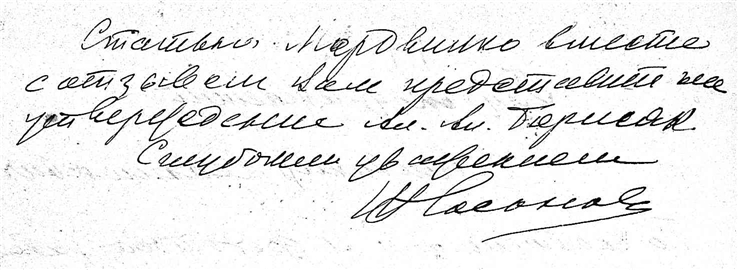 Статью Мордвилко вместе
с отзывом Вам представит на
утверждение Ал. Ал. Борисяк
С глубоким уважением
Насонов